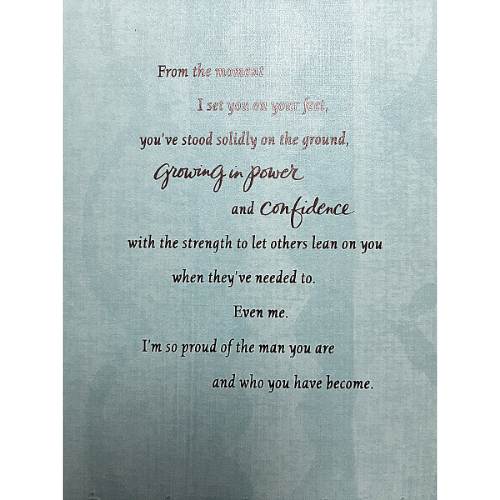 From the moment
I set you on your feet,
you've stood solidly on the ground,
growing in power
and confidence
with the strength to let others lean on you
when they've needed to.
Even me.
I'm so proud of the man you are
and who you have become.